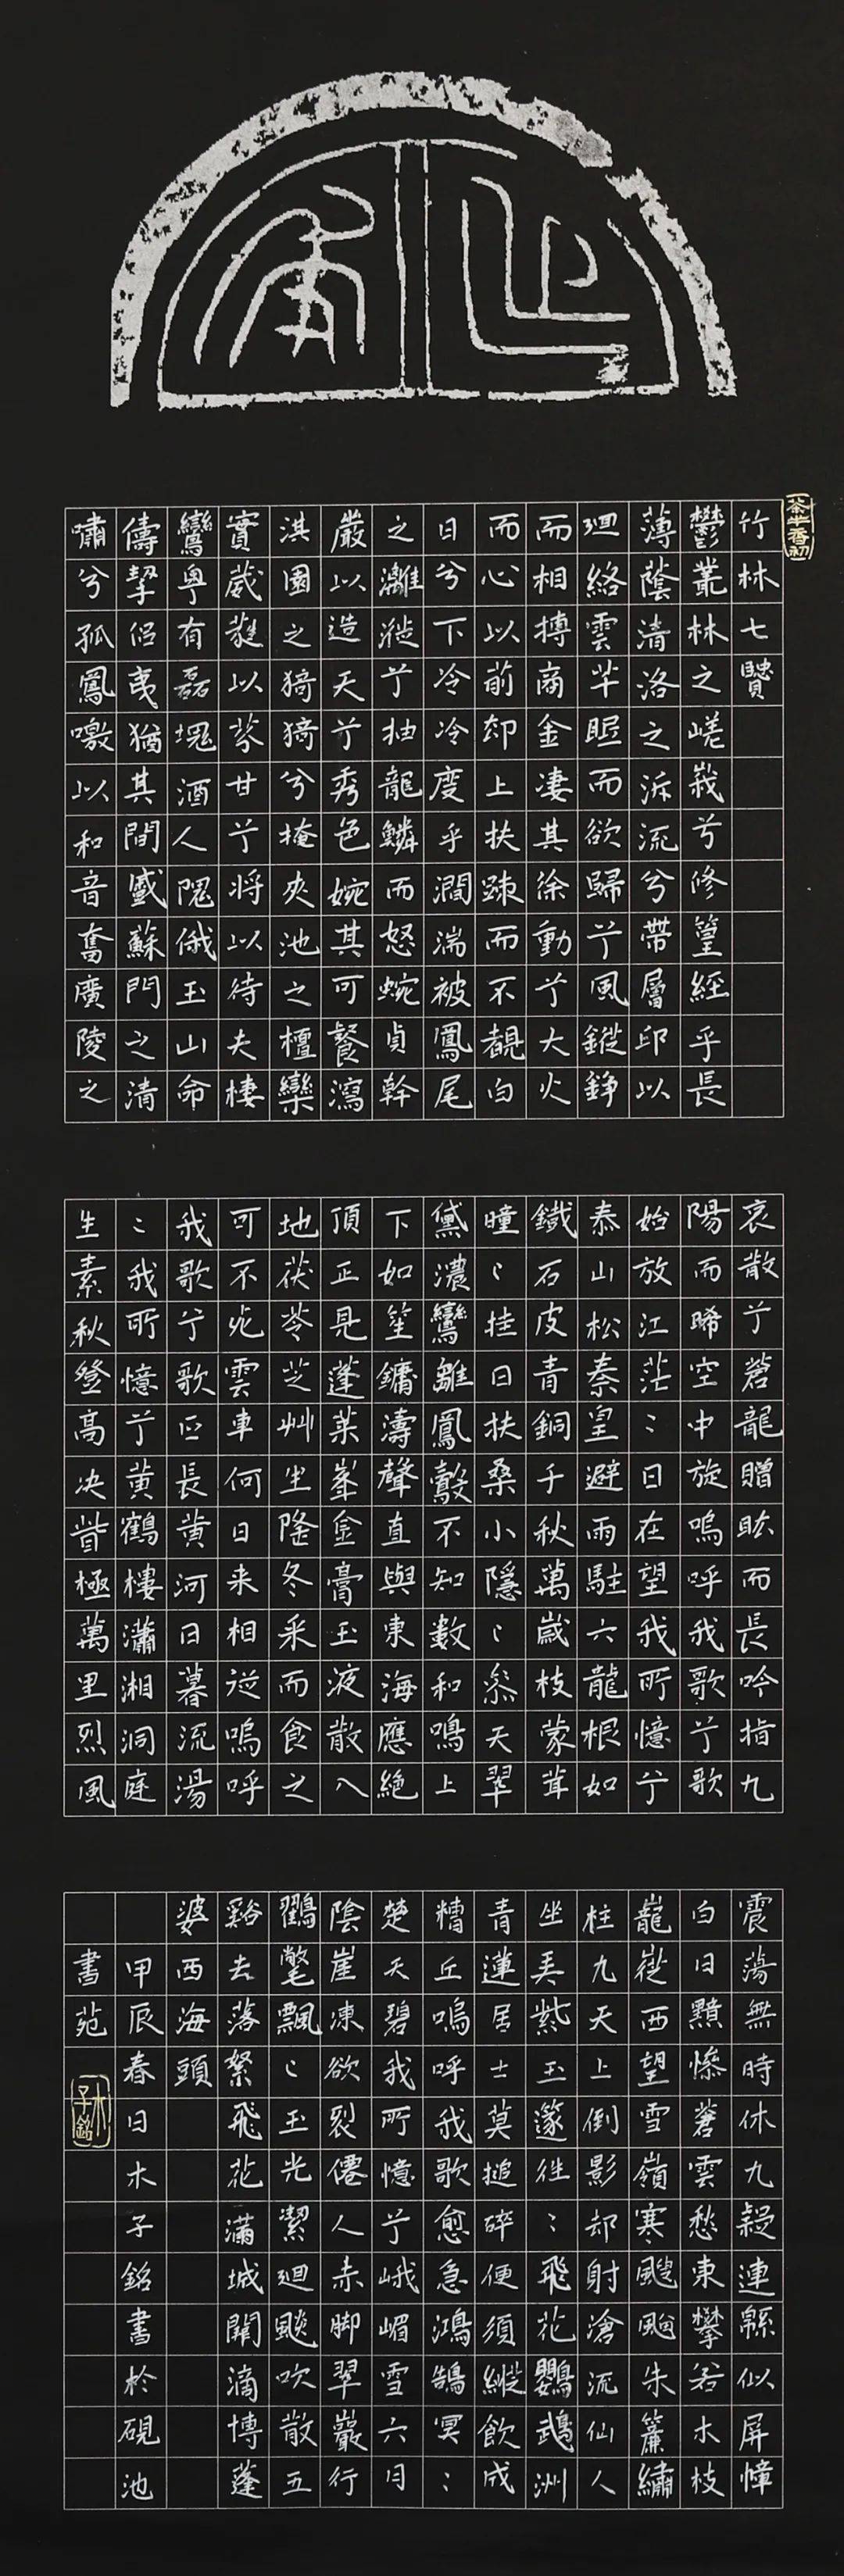 茶半香初
竹林七賢
鬱叢林之嵯峩兮修篁經乎長
薄蔭清洛之泝流兮帶層邱以
廻絡雲芊眠而欲歸兮風鏦錚
而相摶商金凄其徐動兮大火
而心以前却上扶踈而不覩白
日兮下冷冷度乎澗湍被鳳尾
之離褷兮抽龍鱗而怒蜿貞幹
嚴以造天兮秀色婉其可餐瀉
淇園之猗猗兮掩夾池之檀欒
實葳蕤以芬甘兮將以待夫棲
鸞粵有磊塊酒人隗俄玉山命
儔挈侶夷猶其間盛蘇門之清
嘯兮孤鳳噭以和音奮廣陵之
哀散兮蒼龍蹭肱而長吟指九
陽而晞空中旋嗚呼我歌兮歌
始放江茫〻日在望我所憶兮
泰山松秦皇避雨駐六龍根如
鐵石皮青銅千秋萬歲枝蒙茸
曈〻挂日扶桑小隱〻叅天翠
黛濃鸞雛鳳鷇不知數和鳴上
下如笙鏞濤聲直與東海應絕
頂正見蓬萊峯金膏玉液散入
地茯苓芝艸生隆冬采而食之
可不死雲車何日来相從嗚呼
我歌兮歌正長黄河日暮流湯
〻我所憶兮黄鶴樓瀟湘洞庭
生素秋登高决眥極萬里烈風
震蕩無時休九疑連緜似屏幛
白日黯慘蒼雲愁東攀若木枝
巃嵷西望雪嶺寒颼飀朱簾繡
柱九天上倒影却射滄流仙人
坐弄紫玉篴徃〻飛花鸚鵡洲
青蓮居士莫搥碎便須縱飲成
糟丘嗚呼我歌愈急鴻鵠冥〻
楚天碧我所憶兮峨嵋雪六月
陰崖凍欲裂僊人赤脚翠巖行
鸐氅飄〻玉光潔廻飈吹散五
谿去落絮飛花滿城闕滴博蓬
婆西海頭
甲辰春日木子銘書於硯池
書苑
木子銘